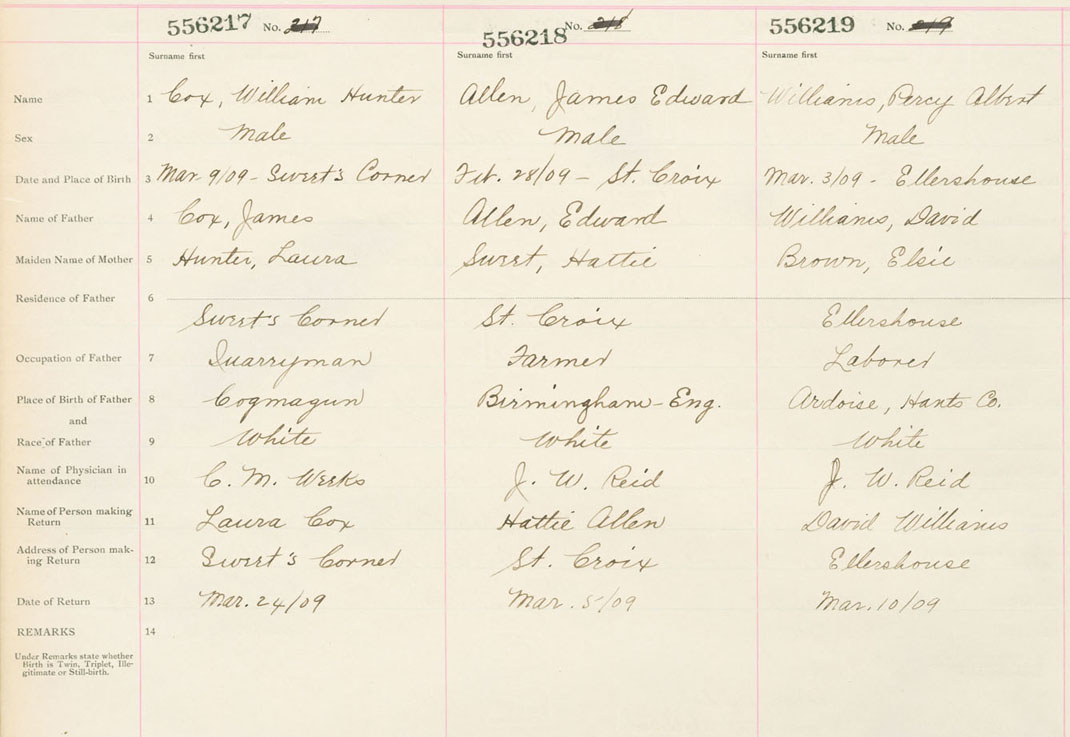 556217 No. 217 556218 No. 218 556219 No. 219
Surname first Surname first Surname first
Name 1 Cox, William Hunter Allen, James Edward Williams, Percy Albert
Sex 2 Male Male Male
Date and Place of Birth 3 Mar. 9/09 - Sweet's Corner Feb. 28/09 - St. Croix Mar. 3/09 - Ellershouse
Name of Father 4 Cox, James Allen, Edward Williams, David
Maiden Name of Mother 5 Hunter, Laura Sweet, Hattie Brown, Elsie
Residence of Father 6
Sweet's Corner St. Croix Ellershouse
Occupation of Father 7 Quarryman Farmer Laborer
Place of Birth of Father 8 Cogmagun Birmingham - Eng. Ardoise, Hants Co.
and
Race of Father 9 White White White
Name of Physician in
attendance 10 C. M. Weeks J. W. Reid J. W. Reid
Name of Person making
Return 11 Laura Cox Hattie Allen David Williams
Address of Person mak-
ing Return 12 Sweet's Corner St. Croix Ellershouse
Date of Return 13 Mar. 24/09 Mar. 5/09 Mar. 10/09
REMARKS 14
Under Remarks state whether
Birth is Twin, Triplet, Ille-
gitimate or Still-birth.